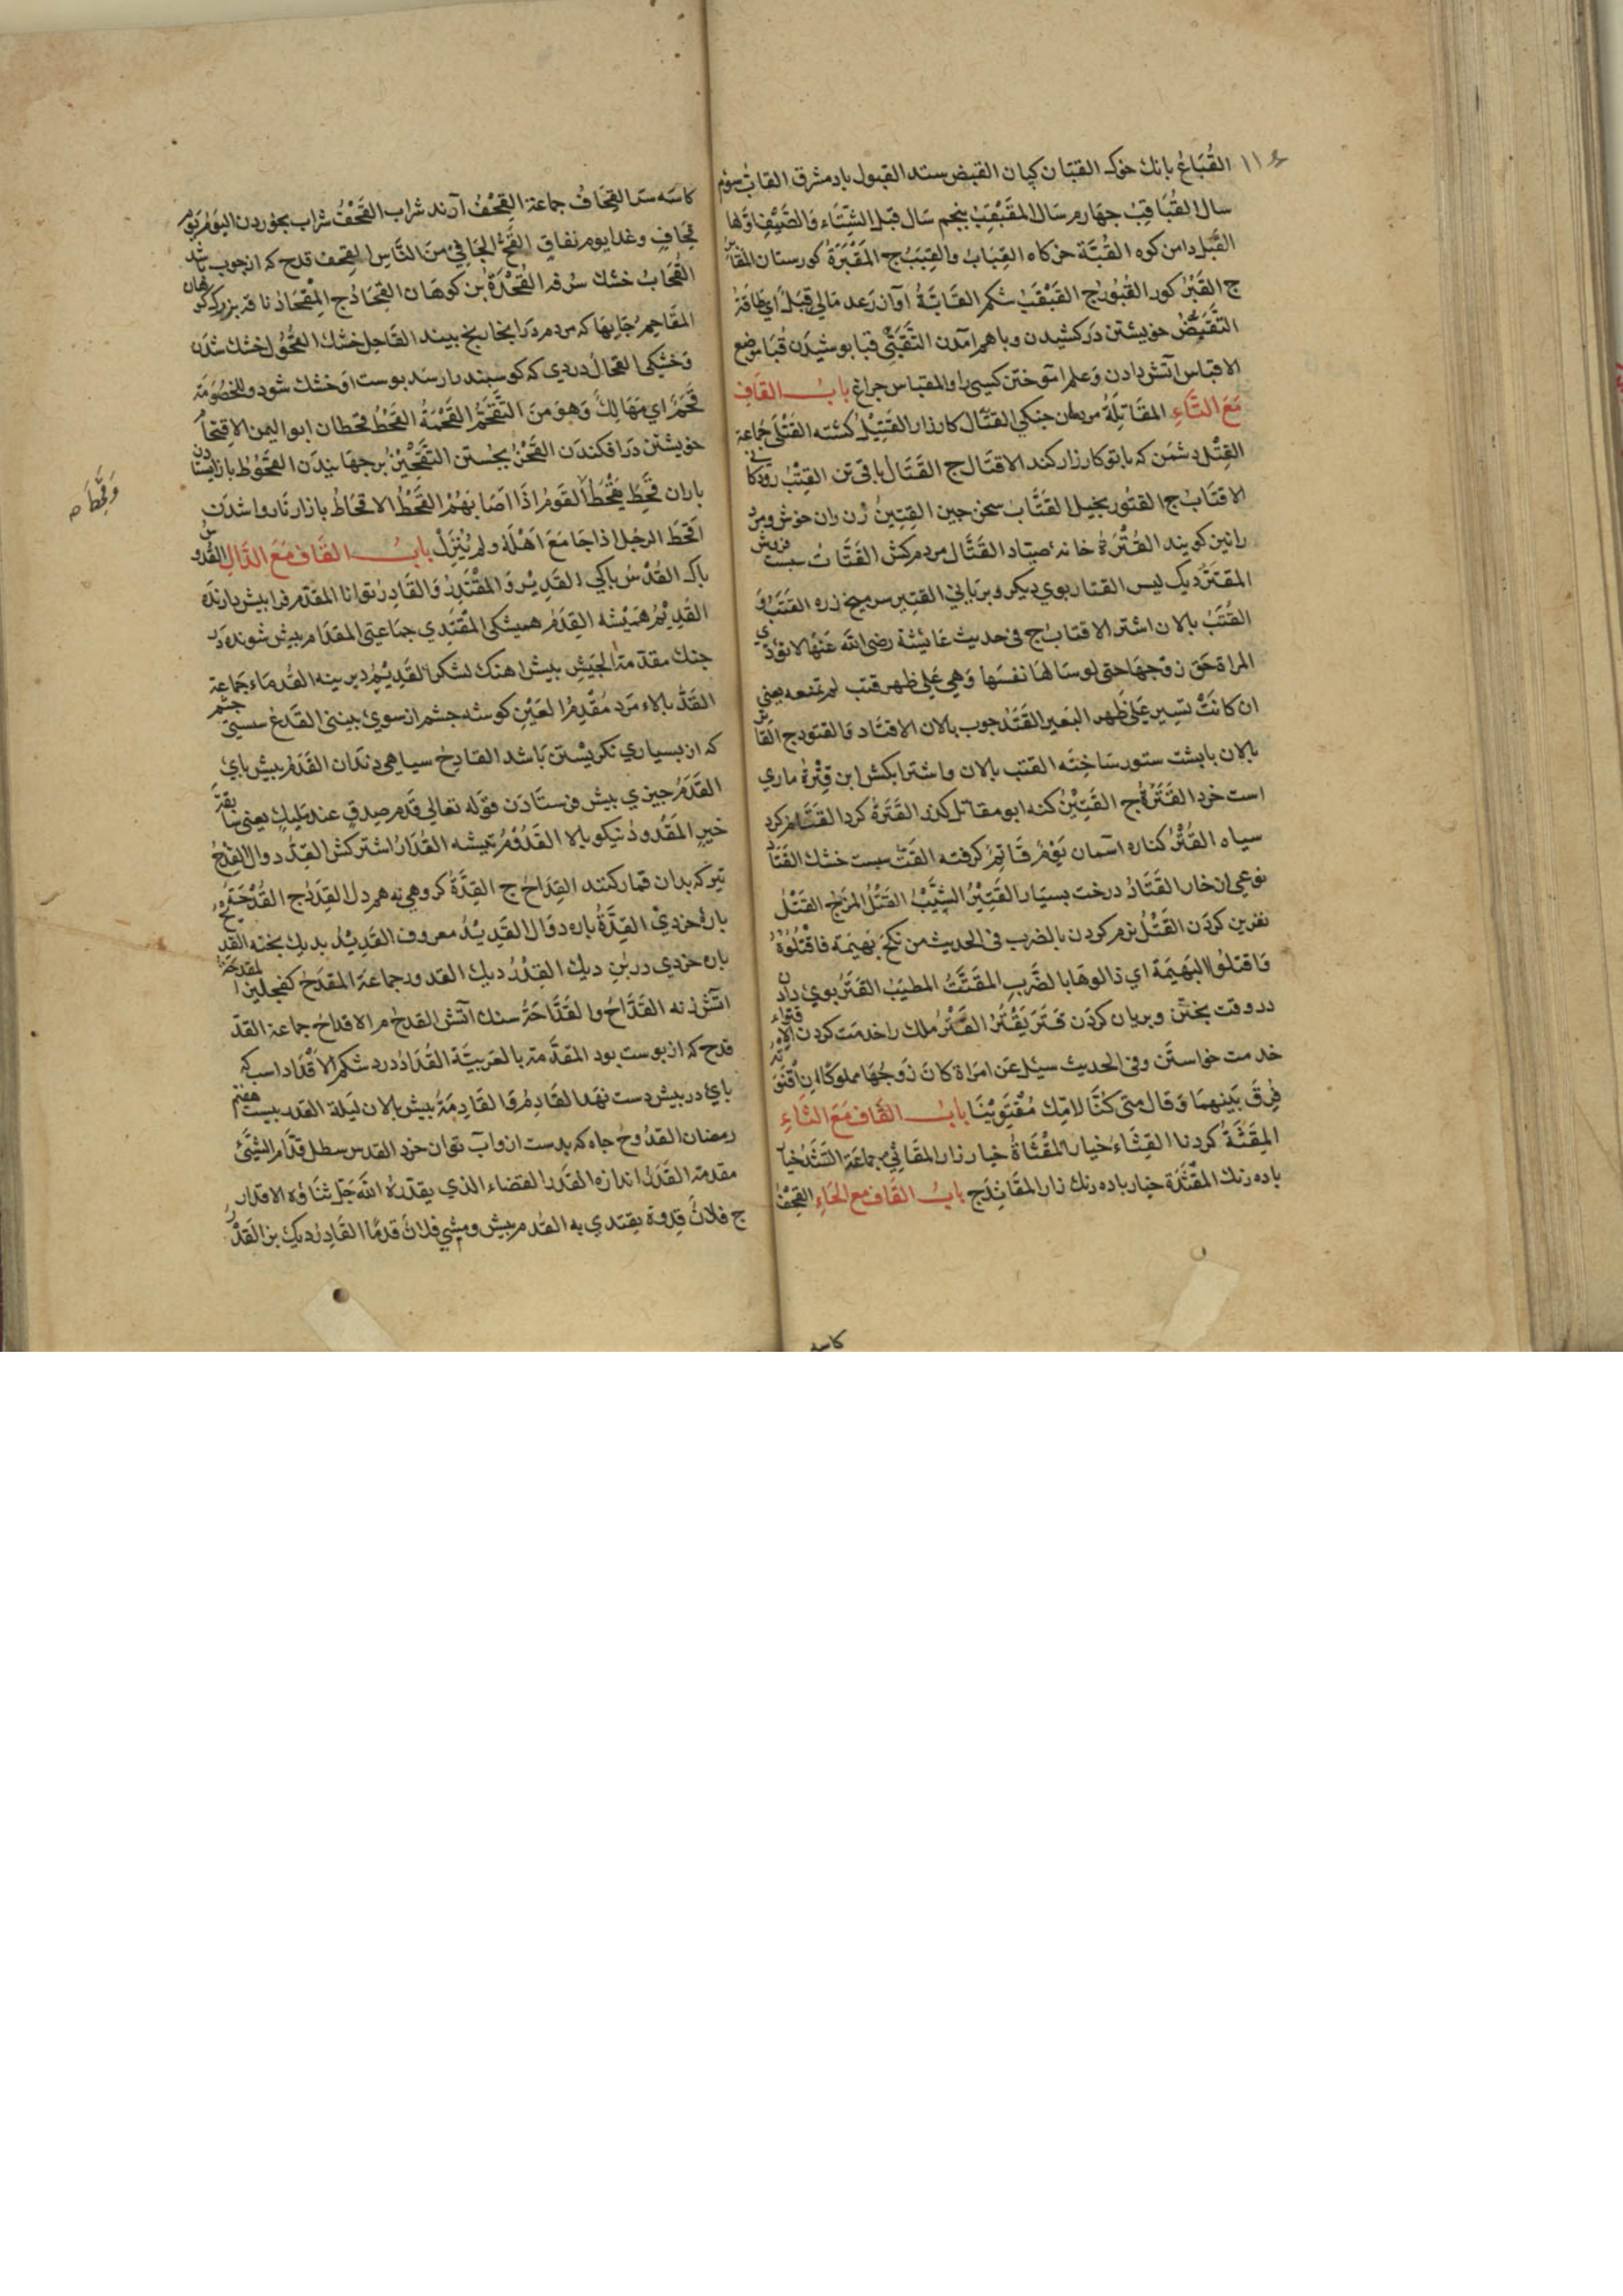 ١١٤
القُبَاعُ بانك خوك القبّان كپان القبض ستد القبول باد مشرق القابُ سوم
سال القُبَاقِبُ جهارم سال المقَبْقِبُ پنجم سَال قبل الشِّتَاء وَالصَّيْفِ اوّلها
القُبل دامن كوه القُبَّة خركاه القِبَابُ والقِبَبُ ج المَقْبَرَة كورستان المقابر
ج القَبْرُ كور القُبُور ج القَبْقَبُ شكم القَابَّةُ آوآن رَعد مَالى قِبَلٌ اي طاقَة
التَّقَبُّض خويشتن دَر كشيدن وباهم آمدن التَّقَبِّى قبا بوشيدَن قُبَا موضع
الاقباس آتش دادن وَعلم آموختن كسى را والمقباس جراغ بابُ القَافِ
مَعَ التَّاءِ المقَاتِلَةُ مردمان جنكي القتَّال كارزار القَتِيْلُ كشته القَتْلَى جَماعة
القِتْل دشمَن كه با توكارزار كند الاقتَال ج القَتَال باقى تن القِتْبُ رودكانى
الاقتَابُ ج القتُور بخيل القَتَّاب سخن جين القِتِينُ زن ران خوش ومرد
رانين كويند القُتْرَةُ خانهٔ صيّاد القَتَّال مردم كش القَتَّاتُ سبست فروش
المقتَّر ديك ليس القتار بوي ديكر وبريانى القتِير سر ميخ زره القَتَبُ وَ
القُتَبُ بالان اشتر الاقتابُ ج فى حديث عَائيشة رضى الله عَنْها لا تؤدّي
المراة حَق زوجهَا حتى لو سَالهَا نفسَها وَهي عَلى ظهر قتب لم تمنعه يعنى
ان كانَتْ تسِير عَلىَ ظَهر البَعير القَتَد جوب بالان الاقتَاد وَالقتود ج القَا
بالان بابشت ستور سَاخته القتب بالان واشترا بكش ابن قِتْرةُ مارى
است خرد القَتَرَةُ ج القَتِيْن كنه ابو مقاتل كند القَتَرَةُ كرد القَتَام كرد
سياه القُتْرُ كناره آسمان يَوْمٌ قَاتِمٌ كرفته القَتّ سبست خشك القَتَاد
نوعى از خار القَتَادُ درخت بسيار القَتِيْرُ الشَّيْبُ القَتْلُ المزَاج القَتْلُ
نفرين كردَن القَتْلُ نرم كردن بالضرب فى الحديث من نكَحَ بَهيمَة فاقْتلُوهُ
وَاقتلوا البَهيمَة اي ذالوهَا بالضَّربِ المقَتَّتُ المطيَّب القَتَرُ بوي دادن
در وقت بختن وبريان كردن قَتَرَ يَقْتُرُ القَتْرُ ملك را خدمت كردن
خدمت خواستَن وفى الحديث سيئل عَن امرَاة كَانَ زَوجُهَا مملوكًا
فَرِقَ بَينهمَا وَقال متى كُنَّا لامّك مُقْتَوِيْنَا بابُ القَاف مَعَ الثَّاءِ
المِقَثَّةُ كردنا القِثَّاءُ خيار المَقْثَاةُ خيار زار المقَاثي جماعَة القَثَدُ خيار
باده رنك المَقْثَدَة خيار باده رنك زار المقَاثِد ج بابُ القَاف مع الحَاءِ القِحْفُ
كاسه
كاسَه سَر القِحَافُ جماعة القِحْفُ آوند شراب القَحْفُ شراب بخوردن اليَومُ يَوْم
قِحَافٍ وغدا يوم نفاقٍ القُحُّ الجَافِيُ مِنَ النَّاس القِحف قدح كه از جوب باشد
القُحَابُ خشك سُرفه القُحْدَةُ بُن كوهَان القِحَادُ ج المِقْحَادُ ناقه بزرك كوهان
المقَاحِم جَايهَا كه مردم دَرا بخار يخ ببيند القَاحِل خشك القُحُوْل خشك شدَن
وَخشكى القحَال دردى كه كوسبند را رسَد بوست او خشك شود وللخصُومَة
قُحَمٌ اي مَهَالِكُ وَهوَ مِنَ التَّقَحُّم القُحْمَةُ القَحْطُ قحطان ابو اليمن الاقتحَامُ
خويشتن دَر افكندَن القَحْنُ بجُستن التَّقحِيْنُ برجهَانيدَن القحُوْط باز ايستادن
باران قُحِطَ يُقْحَطُ القَومُ اذَا اصَابَهُمُ القَحْطُ الاقحَاطُ بازار نَاروا شدَن
اَقحَطَ الرجُل اذا جَامَعَ اَهْلَهُ ولم يُنزِلْ بابُ القَاف مَعَ الدَّالِ القُدُّوسُ
باك القُدْسُ باكى القَدِيْر وَالمقْتَدِرُ وَالقَادِر توانا المقدّم فرا بيش دارنده
القَدِيْمُ هَمِيْشه القِدَمُ هميشكى المُقْتَدِي جمَاعتى المقدَام بيش شونده دَر
جنك مقدّمةُ الجَيْشِ بيش اهنك لشكر القَدِيْمُ ديرينه القُدمَاء جَماعة
القَدُّ بالاء مَرد مُقْدِمُ العَيْنِ كوشه جشم از سوى بينى القَدَع سستىِ جشم
كه از بسيارى نكريْستن بَاشد القادِح سياهى دندان القَدَمُ بيش باي
القَدَمُ جيزي بيش فرستَادَن قوَله تعَالى قَدَم صِدقٍ عند مَليكٍ يعنى سَابقة
خير المَقدُودُ نيكو بالا القَدُوْمُ تيشه القُدَارُ اشتر كش القِدُّ دوال القِدْحُ
تير كه بدان قمار كنند القِدَاحُ ج القِدَّةُ كروهى نه همردل القِدَدُ ج القُدْحَةُ
بارهٔ خردي القِدَّةُ باره دوَال القَدِيْدُ معروف القَدِيْدُ بديك بخته القد
باره خردي در بُنِ ديك القِدْرُ ديك القدور جماعَة المِقدَحُ كفجلين المقدحَة
اتش زنه القَدَّاحُ والقَدَّاحَةُ سنك آتش القدحُ م الاقداحُ جماعة القدّ
قدح كه از بوست بود المقدّمة بالعَربيَّة القُدَادُ درد شكم الاَقْدَاد اسب كه
باي در بيش دست نهَد القَادِمُ وَالقَادِمَةُ بيش بالان ليْلَة القَدر بيست هفتم
رمضان القدُوحُ جاه كه بدست ازو آب توان خورد القدس سطل قدَّام الشَّيئ
مقدمة القَدَرُ اندازه القَدَر القضاء الذي يقدّرهُ اللهُ جَلَّ ثناؤه الاقدار
ج فلانٌ قِدوَة يقتدي به القُدم بيش ومشي فلانٌ قدمًا القَادِرُ ديك بز القَدْرُ
وَقحْطًا صح